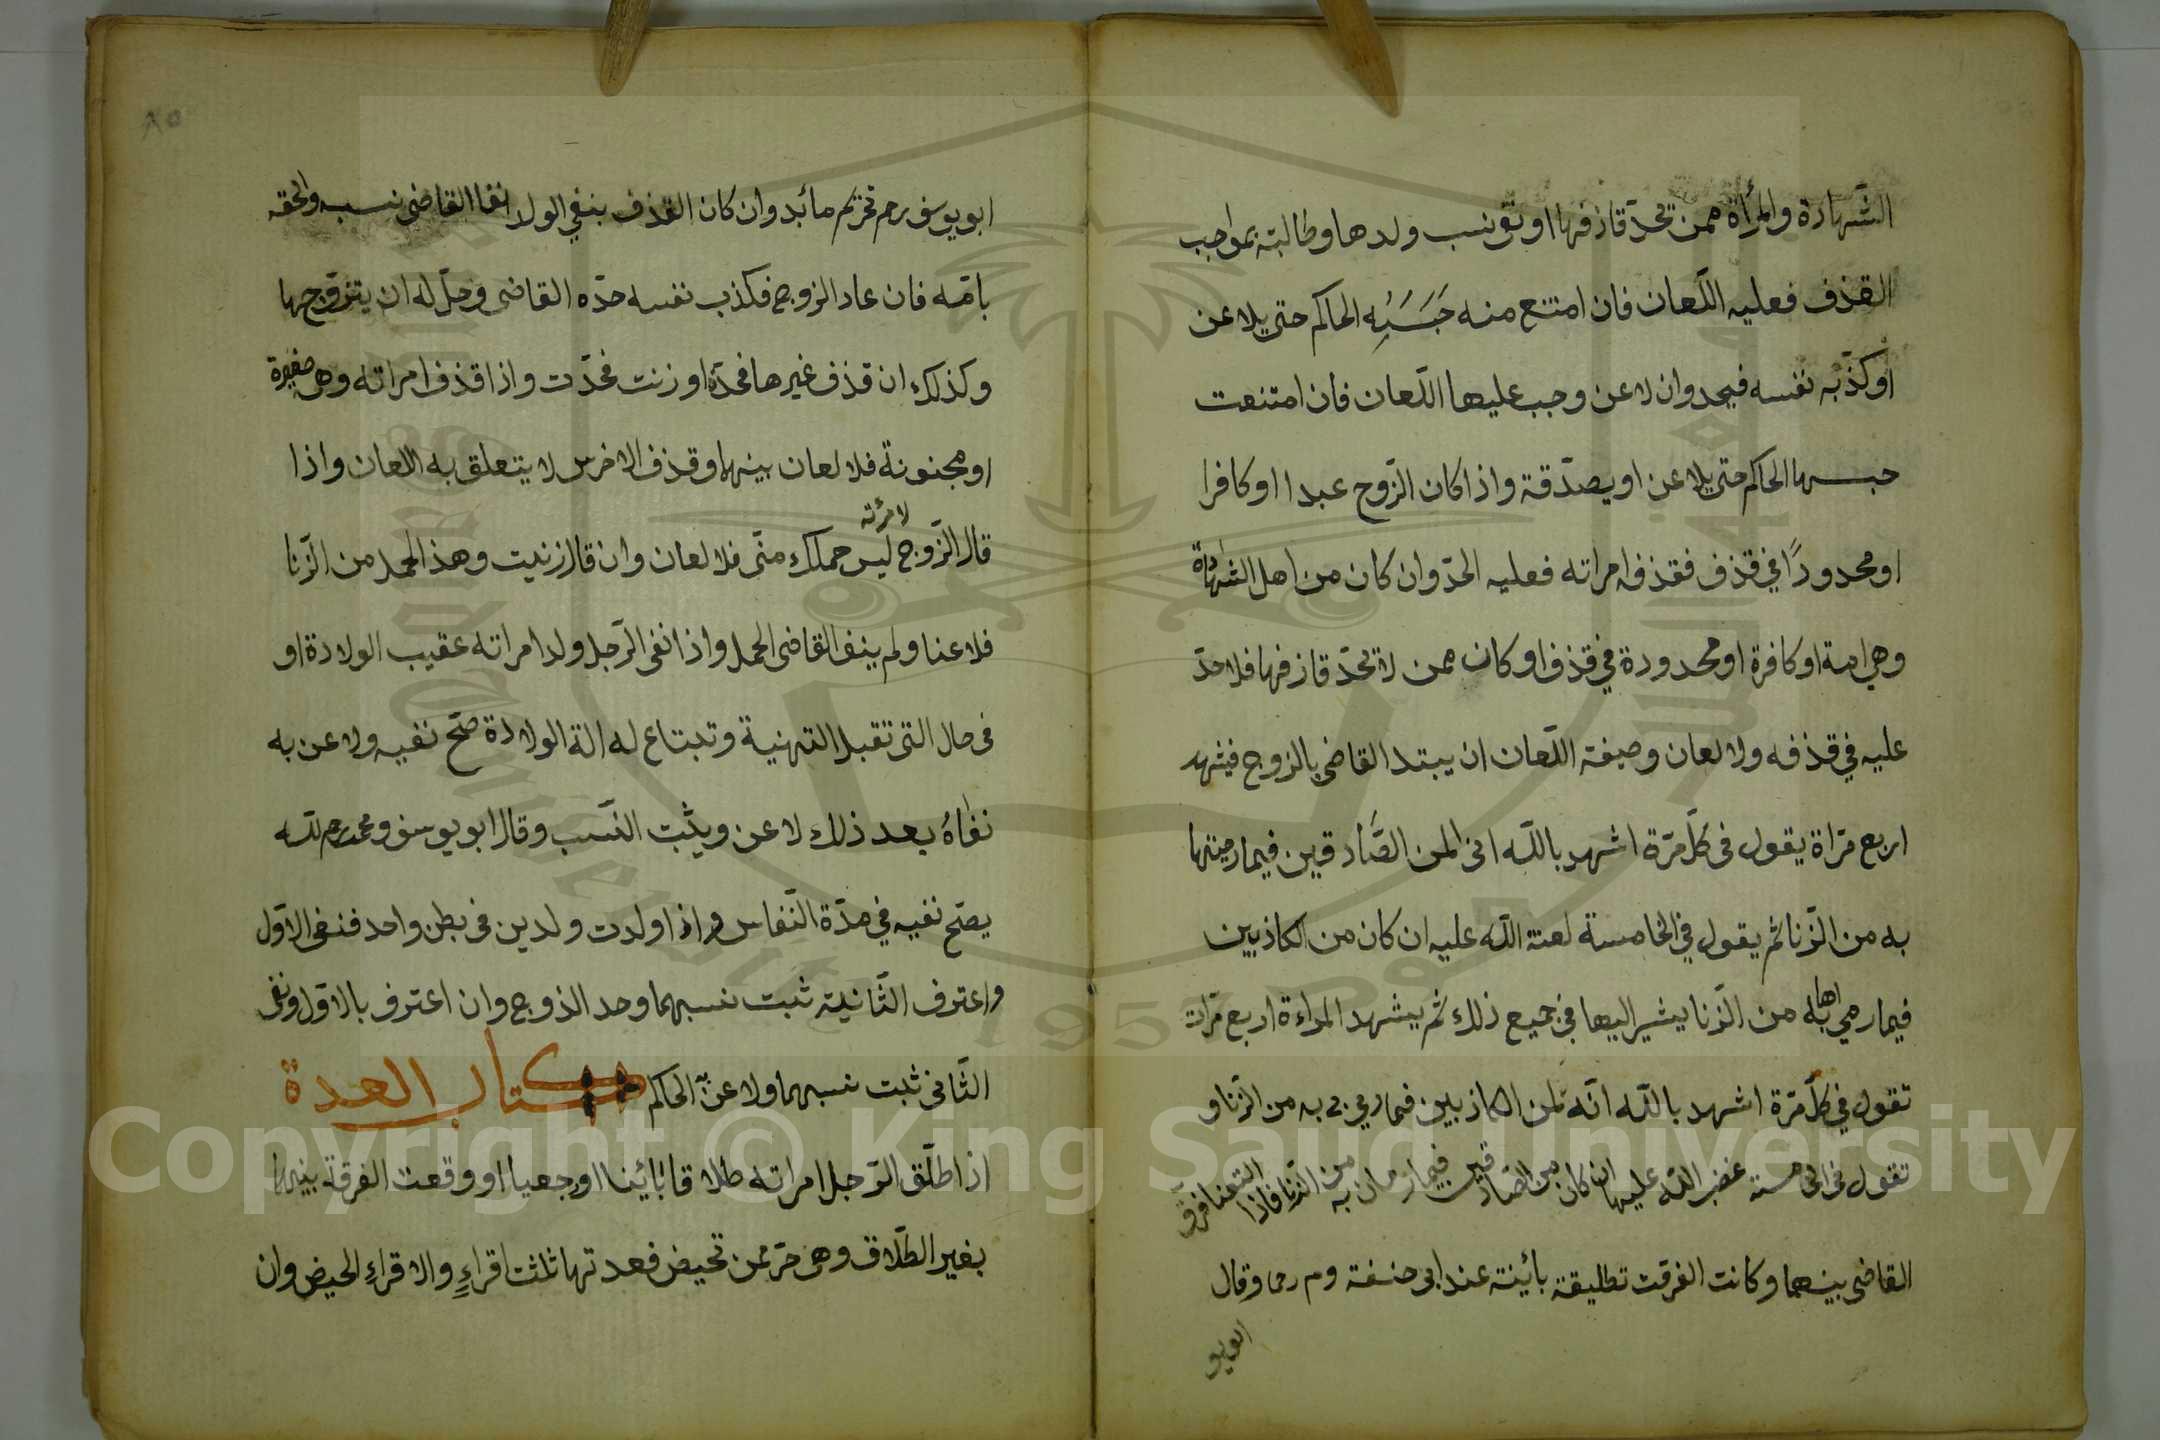 الشّهادة والمرأة ممن يحدّ قاذفها او نفى نسب ولدها وطالبته بمواجب
القذف فعليه اللّعان فان امتنع منه حَبَسَه الحاكم حتى يلاعن
او كذّب نفسه فيحد وان لاعن وجب عليها اللّعان فان امتنعت
حبسها الحاكم حتى يلاعن او يصدّقة واذا كان الزّوج عبدا او كافرا
او محدودًا في قذف فقذف امراته فعليه الحدّ وان كان من اهل الشّهادة
وهي امة او كافرة او محدودة في قذف او كانت ممن لا يحدّ قاذفها فلا حدّ
عليه في قذفه ولا لعان وصيفة اللّعان ان يبتدا القاضى بالزوج فيشهد
اربع مرّاة يقول فى كلّ مرّة اشهد باللّه انى لمن الصّادقين فيما رميتها
به من الزّنا ثم يقول في الخامسة لعنة اللّه عليه ان كان من الكاذبين
فيما رمي اها به من الزّنا يشير اليها في جميع ذلك ثم يشهد المراءة اربع مرّات
تقول في كلّ مرّة اشهد باللّه انّه لمن الكاذبين فيما رمي به من الزّنا و
تقول فى الخامسة غضب اللّه عليها ان كان من الصّادقين فيما رمان به من الزّنا فاذا التعنا فرّق
القاضى بينهما وكانت الفرقت تطليقة بائينة عند ابى حنفة وم رمى وقال
ابويو
٨٥
ابو يوسف رحم تحريم مائبد وان كان القذف بنفي الولد انفا القاضى نسبه والحقه
بامّه فان عاد الزوج فكذب نفسه حدّه القاضى وحلّ له ان يتزوّجها
وكذلك ان قذف غيرها فحدّه او زنت فحدّت واذا قذف امراته وهى صغيرة
او مجنونة فلا لعان بينهما وقذف الاخرس لا يتعلق به اللعان واذا
قال الزّوج لامرئته ليس حملك منّى فلا لعان وان قال زنيت وهذ الحمل من الزّنا
فلاعنا ولم ينف القاضى الحمل واذا نفى الرّجل ولد امراته عقيب الولادة او
فى حال التى تقبل التهنية وتبتاع له الة الولادة صّح نفيه ولاعن به
نفاهُ بعد ذلك لاعن ويثّبت النّسب وقال ابو يوسف ومحمد رحم للّه
يصّح نفيه في مدّة النّفاس واذا ولدت ولدين فى بطن واحد فنفى الاوّل
واعترف الثّانية ثبت نسبهما وحد الذوج وان اعترف بالاوّل ونفى
الثّانى ثبت نسبهما ولاعن الحاكم كتاب العدة
اذا طلّق الرّجل امراته طلاقا بائينا او رجعيا او وقعت الفرقة بينهما
بغير الطّلاق وهى حرّ ممن تحيض فعدتها ثلثت اقراءٍ والاقراء الحيض وان
Copyright © King Saud University
1957